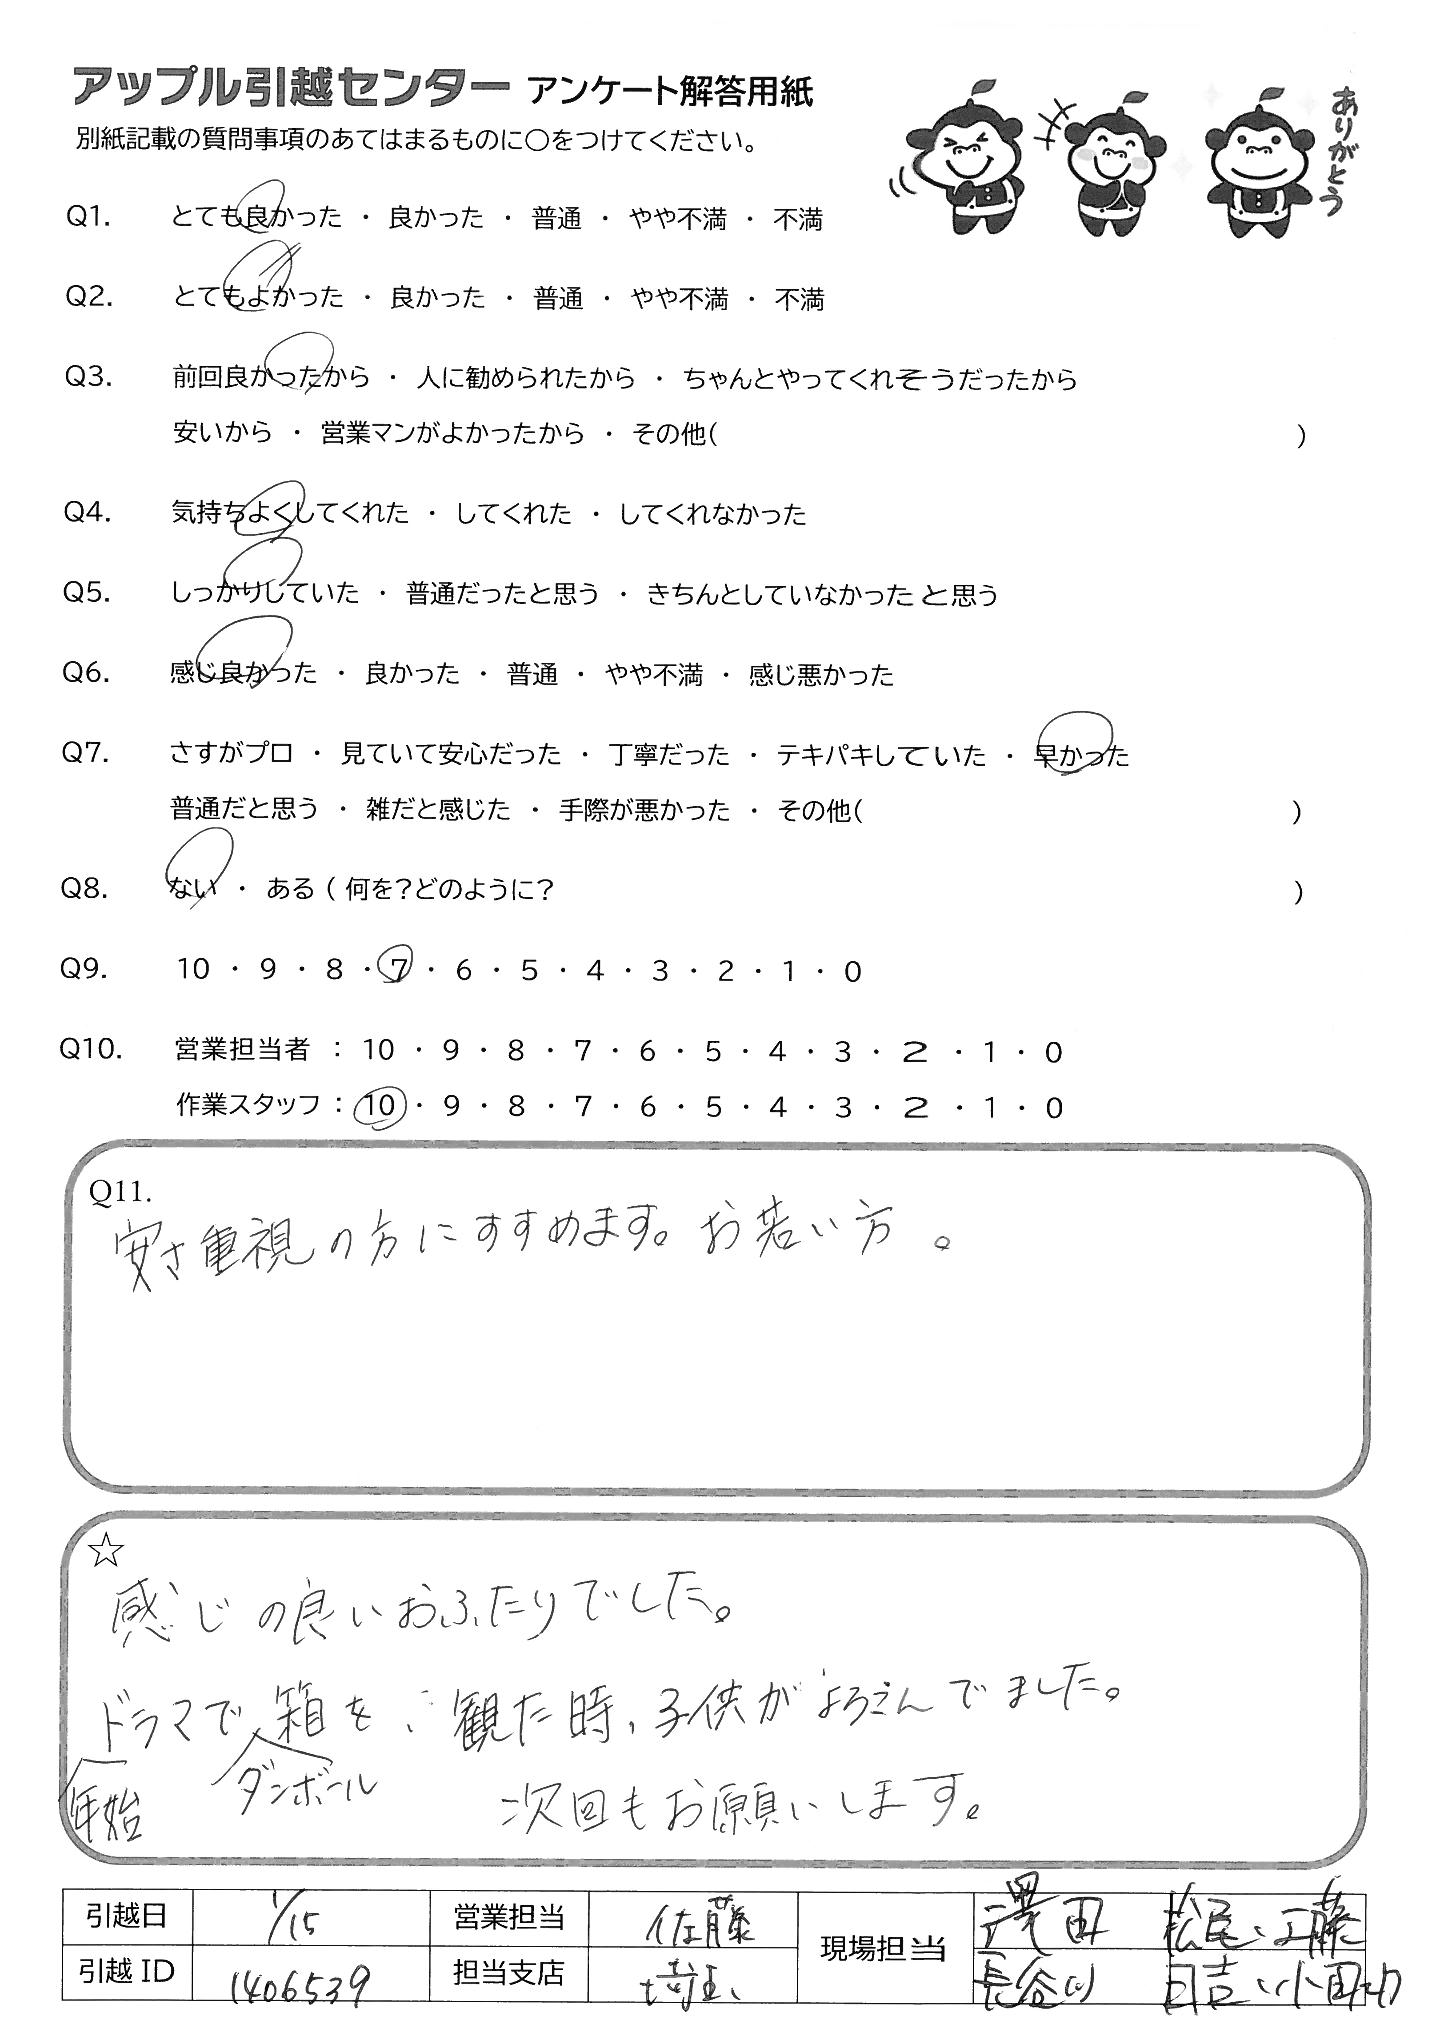 アップル引越センター アンケート解答用紙
ありがとう
別紙記載の質問事項のあてはまるものに○をつけてください。
Q1. とても良かった ・ 良かった ・ 普通 ・ やや不満 ・ 不満
Q2. とてもよかった ・ 良かった ・ 普通 ・ やや不満 ・ 不満
Q3. 前回良かったから ・ 人に勧められたから ・ ちゃんとやってくれそうだったから
安いから ・ 営業マンがよかったから ・ その他( )
Q4. 気持ちよくしてくれた ・ してくれた ・ してくれなかった
Q5. しっかりしていた ・ 普通だったと思う ・ きちんとしていなかったと思う
Q6. 感じ良かった ・ 良かった ・ 普通 ・ やや不満 ・ 感じ悪かった
Q7. さすがプロ ・ 見ていて安心だった ・ 丁寧だった ・ テキパキしていた ・ 早かった
普通だと思う ・ 雑だと感じた ・ 手際が悪かった ・ その他( )
Q8. ない ・ ある ( 何を?どのように? )
Q9. 10 ・ 9 ・ 8 ・ 7 ・ 6 ・ 5 ・ 4 ・ 3 ・ 2 ・ 1 ・ 0
Q10. 営業担当者 : 10 ・ 9 ・ 8 ・ 7 ・ 6 ・ 5 ・ 4 ・ 3 ・ 2 ・ 1 ・ 0
作業スタッフ : 10 ・ 9 ・ 8 ・ 7 ・ 6 ・ 5 ・ 4 ・ 3 ・ 2 ・ 1 ・ 0
Q11.
安さ重視の方にすすめます。お若い方。
☆
感じの良いおふたりでした。
ドラマで箱を観た時、子供がよろこんでました。
年始 ダンボール 次回もお願いします。
引越日 1/15 営業担当 佐藤 現場担当 澤田 松尾、工藤
引越ID 1406539 担当支店 埼玉 長谷川 日吉、小田切